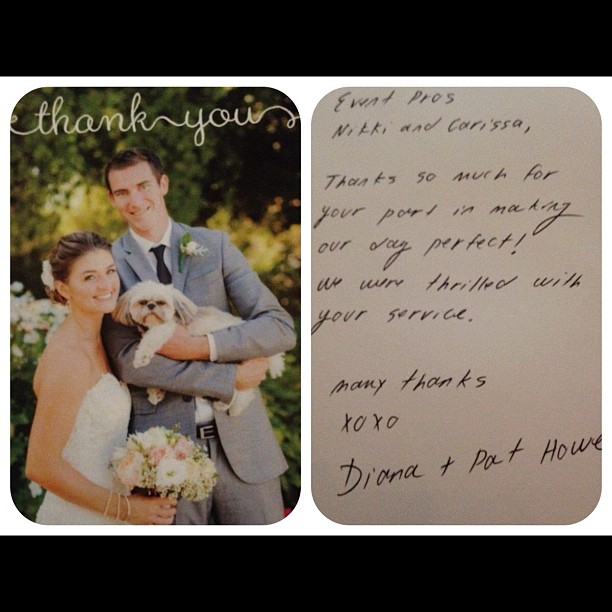 thank you
Event Pros
Nikki and Carissa,
Thanks so much for
your part in making
our day perfect!
we were thrilled with
your service.
many thanks
xoxo
Diana + Pat Howe